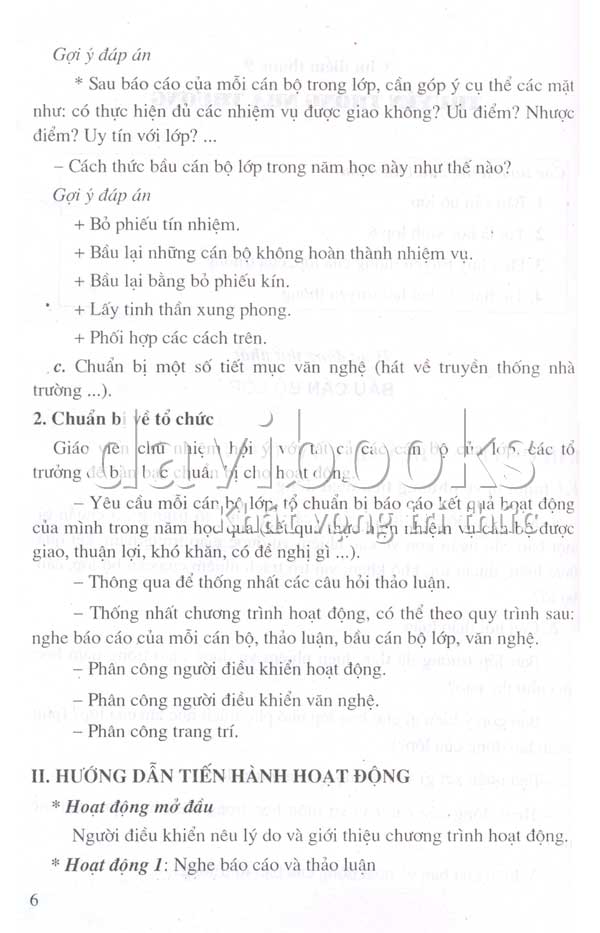 Gợi ý đáp án
* Sau báo cáo của mỗi cán bộ trong lớp, cần góp ý cụ thể các mặt
như: có thực hiện đủ các nhiệm vụ được giao không? Ưu điểm? Nhược
điểm? Uy tín với lớp? ...
– Cách thức bầu cán bộ lớp trong năm học này như thế nào?
Gợi ý đáp án
+ Bỏ phiếu tín nhiệm.
+ Bầu lại những cán bộ không hoàn thành nhiệm vụ.
+ Bầu lại bằng bỏ phiếu kín.
+ Lấy tinh thần xung phong.
+ Phối hợp các cách trên.
c. Chuẩn bị một số tiết mục văn nghệ (hát về truyền thống nhà
trường ...).
2. Chuẩn bị về tổ chức
Giáo viên chủ nhiệm hội ý với tất cả các cán bộ của lớp, các tổ
trưởng để bàn bạc chuẩn bị cho hoạt động.
davibooks
– Yêu cầu mỗi cán bộ lớp, tổ chuẩn bị báo cáo kết quả hoạt động
khát vọng tri thức
của mình trong năm học qua (kết quả thực hiện nhiệm vụ cán bộ được
giao, thuận lợi, khó khăn, có đề nghị gì ...).
– Thông qua để thống nhất các câu hỏi thảo luận.
– Thống nhất chương trình hoạt động, có thể theo quy trình sau:
nghe báo cáo của mỗi cán bộ, thảo luận, bầu cán bộ lớp, văn nghệ.
– Phân công người điều khiển hoạt động.
– Phân công người điều khiển văn nghệ.
– Phân công trang trí.
II. HƯỚNG DẪN TIẾN HÀNH HOẠT ĐỘNG
* Hoạt động mở đầu
Người điều khiển nêu lý do và giới thiệu chương trình hoạt động.
* Hoạt động 1: Nghe báo cáo và thảo luận
6